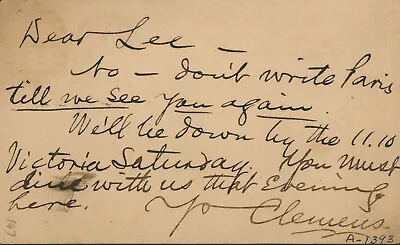 Dear Lee —
No — don't write Paris
till we see you again.
We'll be down by the 11.10
Victoria Saturday. You must
dine with us that Evening
here. Yr Clemens.
A-1393